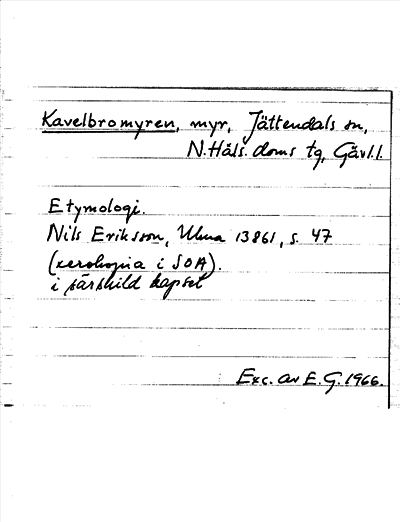 Kavelbromyren, myr, Jättendals sn,
N. Häls. doms tg, Gävl.l.
Etymologi.
Nils Eriksson, Ulma 13861, s. 47
(xerokopia i SOA).
i särskild kapsel
Exc. av E. G. 1966.